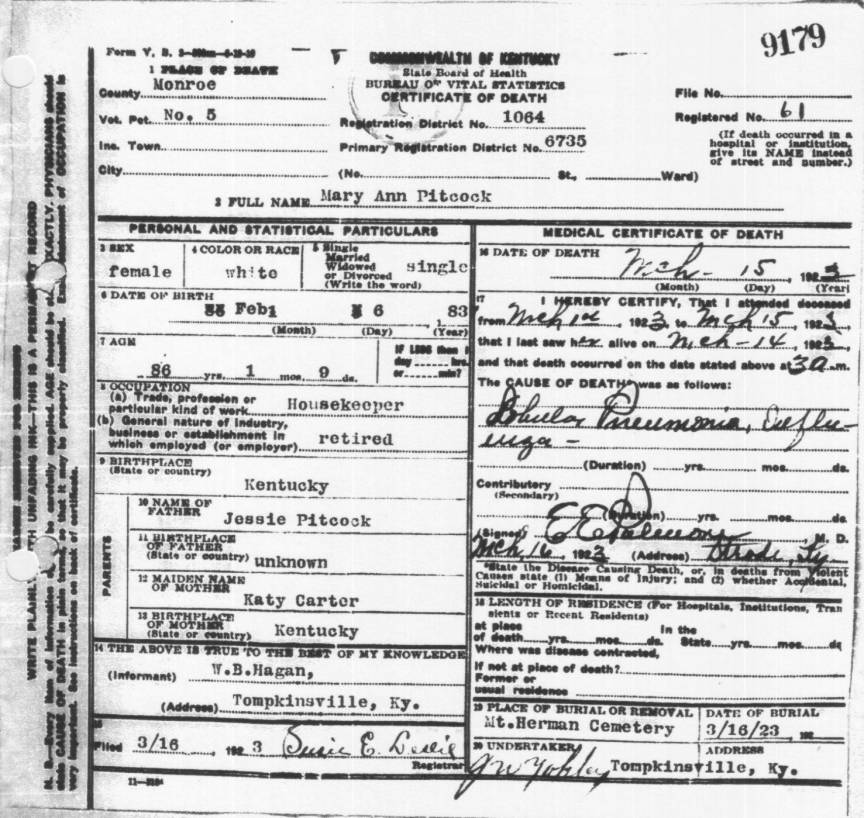 9179
Form V. S.
COMMONWEALTH OF KENTUCKY
State Board of Health
BUREAU OF VITAL STATISTICS
CERTIFICATE OF DEATH
1 PLACE OF DEATH
County Monroe
Vot. Pct. No. 5
Inc. Town
City
Registration District No. 1064
Primary Registration District No. 6735
(No. St., Ward)
File No.
Registered No. 61
(If death occurred in a
hospital or institution,
give its NAME instead
of street and number.)
2 FULL NAME Mary Ann Pitcock
PERSONAL AND STATISTICAL PARTICULARS
3 SEX
female
4 COLOR OR RACE
white
5 Single
Married
Widowed
or Divorced
(Write the word)
single
6 DATE OF BIRTH
Feb 6 1 83
(Month) (Day) (Year)
7 AGE
86 yrs. 1 mos. 9 ds.
IF LESS than 1
day hrs.
or min?
8 OCCUPATION
(a) Trade, profession or
particular kind of work Housekeeper
(b) General nature of industry,
business or establishment in
which employed (or employer) retired
9 BIRTHPLACE
(State or country)
Kentucky
PARENTS
10 NAME OF
FATHER
Jessie Pitcock
11 BIRTHPLACE
OF FATHER
(State or country) unknown
12 MAIDEN NAME
OF MOTHER
Katy Carter
13 BIRTHPLACE
OF MOTHER
(State or country) Kentucky
14 THE ABOVE IS TRUE TO THE BEST OF MY KNOWLEDGE
(Informant) W.B.Hagan,
(Address) Tompkinsville, Ky.
15
Filed 3/16, 1923 Susie E. Leslie
Registrar
MEDICAL CERTIFICATE OF DEATH
16 DATE OF DEATH
Mch - 15, 1923
(Month) (Day) (Year)
17 I HEREBY CERTIFY, That I attended deceased
from Mch 1st, 1923, to Mch 15, 1923,
that I last saw her alive on Mch-14, 1923,
and that death occurred on the date stated above at 3a.m.
The CAUSE OF DEATH was as follows:
Lobular Pneumonia, Influ-
enza -
(Duration) yrs. mos. ds.
Contributory
(Secondary)
(Duration) yrs. mos. ds.
(Signed) E E Palmore, M. D.
Mch 16, 1923 (Address) Strode, Ky
*State the Disease Causing Death, or, in deaths from Violent
Causes state (1) Means of Injury; and (2) whether Accidental,
Suicidal or Homicidal.
18 LENGTH OF RESIDENCE (For Hospitals, Institutions, Tran
sients or Recent Residents)
at place In the
of death yrs. mos. ds. State yrs. mos. ds
Where was disease contracted,
If not at place of death?
Former or
usual residence
19 PLACE OF BURIAL OR REMOVAL
Mt.Herman Cemetery
DATE OF BURIAL
3/16/23, 192
20 UNDERTAKER
J W Yokley
ADDRESS
Tompkinsville, Ky.
WRITE PLAINLY WITH UNFADING INK—THIS IS A PERMANENT RECORD